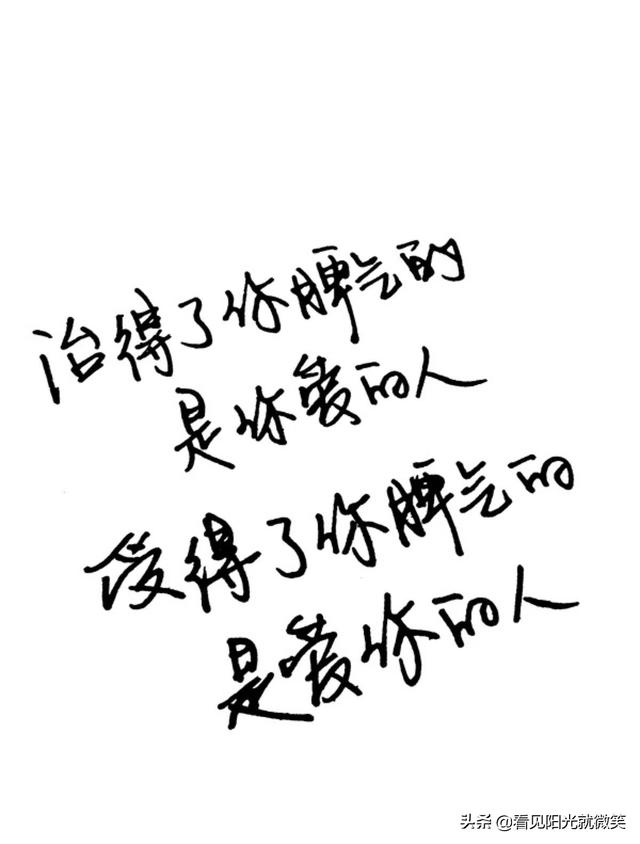 治得了你脾气的
是你爱的人
受得了你脾气的
是爱你的人
头条 @看见阳光就微笑